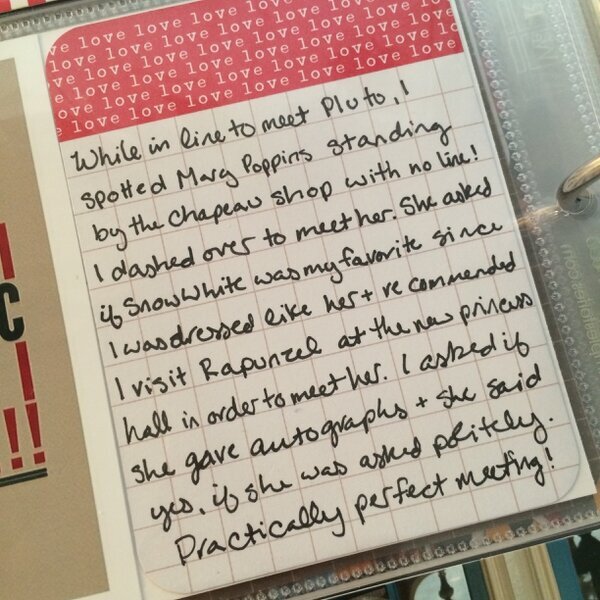 ve love love love love love love love
love love love love love love love
love love love love love love love love
love love love love love love love
love love love love love love love love
While in line to meet Pluto, I
spotted Mary Poppins standing
by the Chapeau shop with no line!
I dashed over to meet her. She asked
if Snow White was my favorite since
I was dressed like her + recommended
I visit Rapunzel at the new princess
hall in order to meet her. I asked if
she gave autographs + she said
yes, if she was asked politely.
Practically perfect meeting!
C
!!